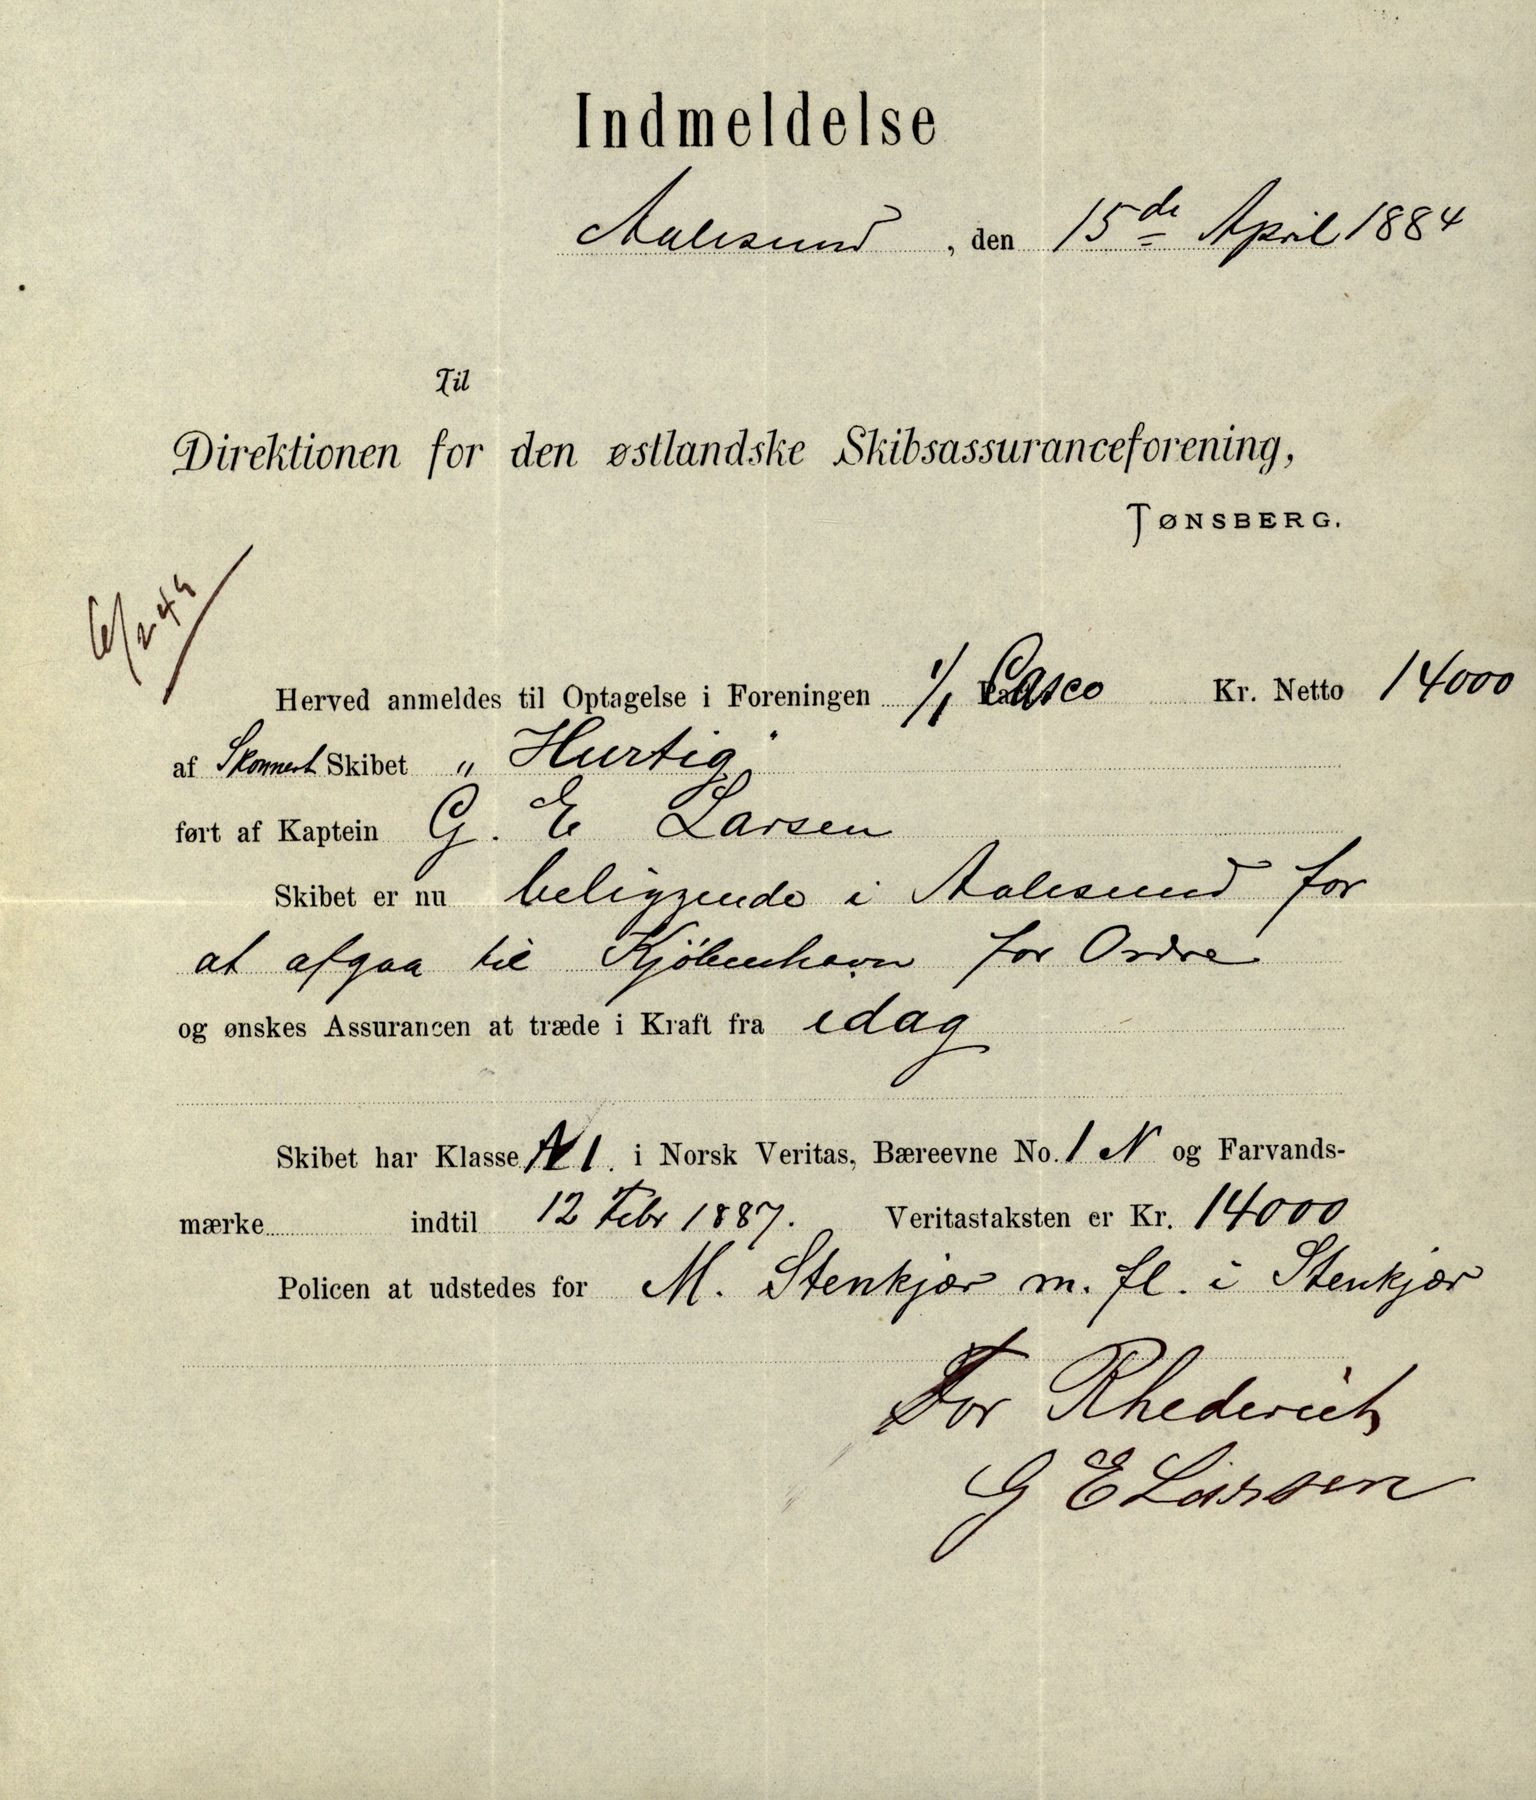 Indmeldelse
Aalesund, den 15de April 1884
Til
Direktionen for den østlandske Skibsassuranceforening,
TØNSBERG.
Herved anmeldes til Optagelse i Foreningen 1/1 Casco Kr. Netto 14000
af Skonnert Skibet „Hurtig"
ført af Kaptein G. E Larsen
Skibet er nu beliggende i Aalesund for
at afgaa til Kjöbenhavn for Ordre
og ønskes Assurancen at træde i Kraft fra idag
Skibet har Klasse A 1. i Norsk Veritas, Bæreevne No. 1 N og Farvands-
mærke indtil 12 Febr 1887. Veritastaksten er Kr. 14000
Policen at udstedes for M. Stenkjær m. fl. i Stenkjær
For Rhederiet
G E Larsen